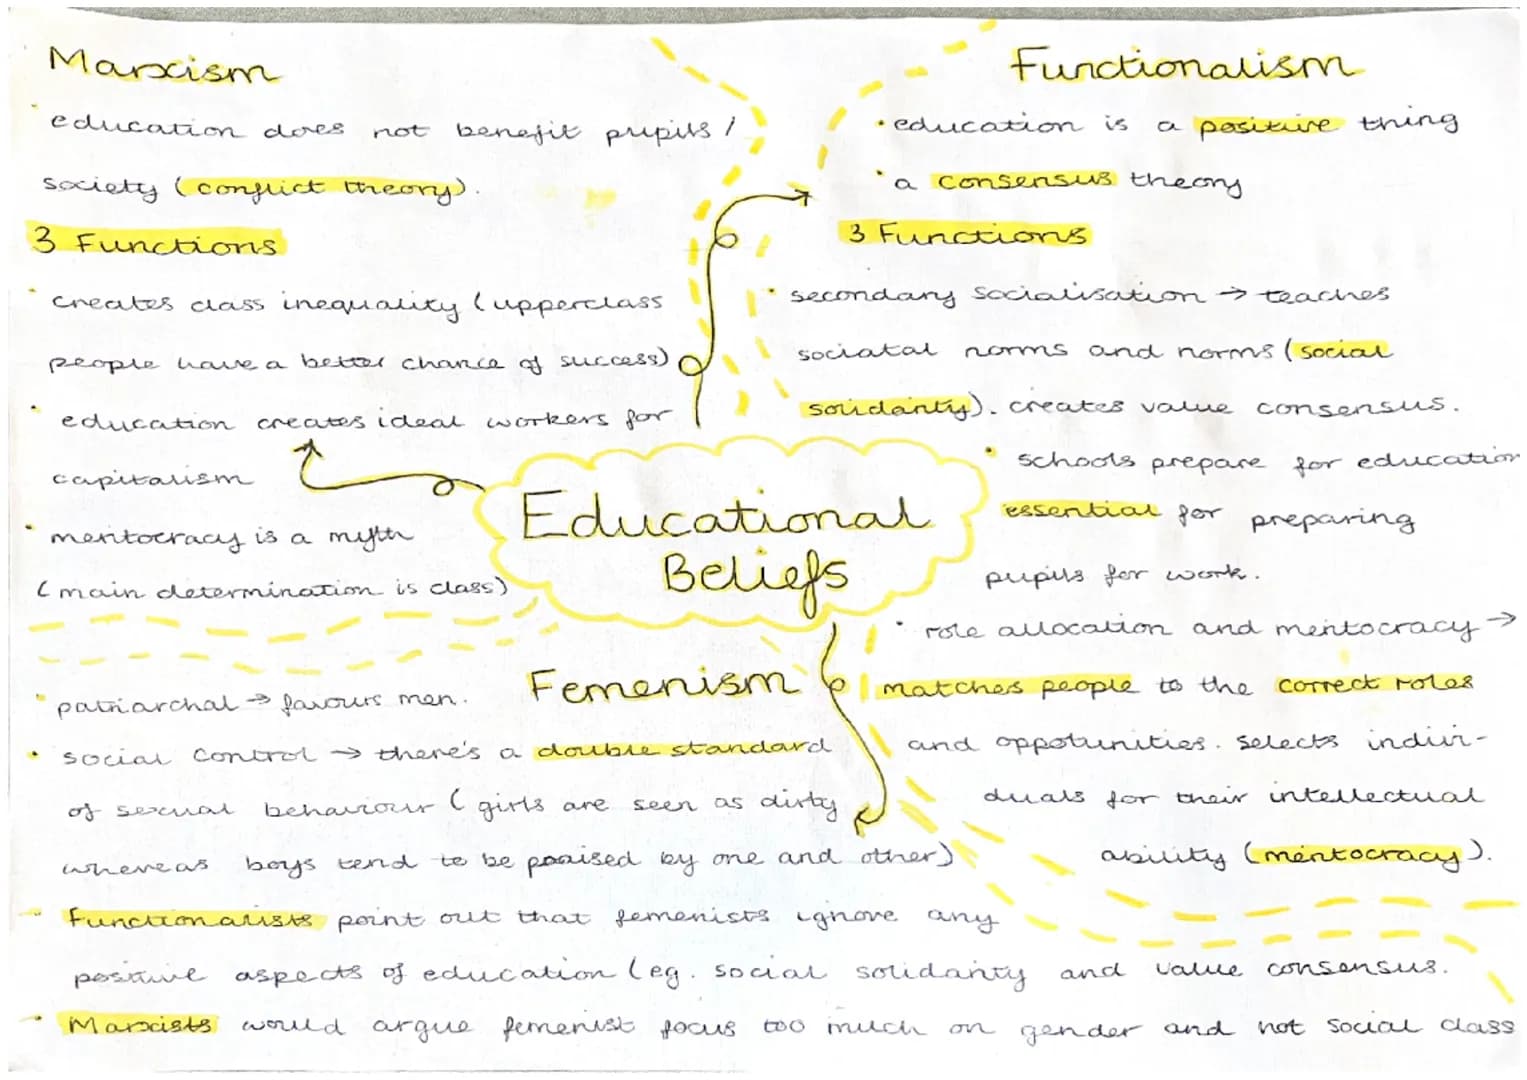 Marxism
education does not benefit pupils /
society (conflict theory).
3 Functions
creates class inequality (upperclass
people have a better chance of success)
education creates ideal workers for
capitalism
meritocracy is a myth
(main determination is class)
Functionalism
• education is a positive thing
• a consensus theory
3 Functions
• secondary socialisation → teaches
sociatal norms and norms (social
solidarity). creates value consensus.
• schools prepare for education
essential for preparing
pupils for work.
• role allocation and meritocracy →
matches people to the correct roles
and oppotunities. selects indivi-
duals for their intellectual
ability (meritocracy).
Educational
Beliefs
Femenism
• patriarchal → favours men.
• social control → there's a double standard
of sexual behaviour (girls are seen as dirty
whereas boys tend to be praised by one and other)
- Functionalists point out that femenists ignore any
positive aspects of education (eg. social solidarity and value consensus.
- Marxists would argue femenist focus too much on gender and not social class